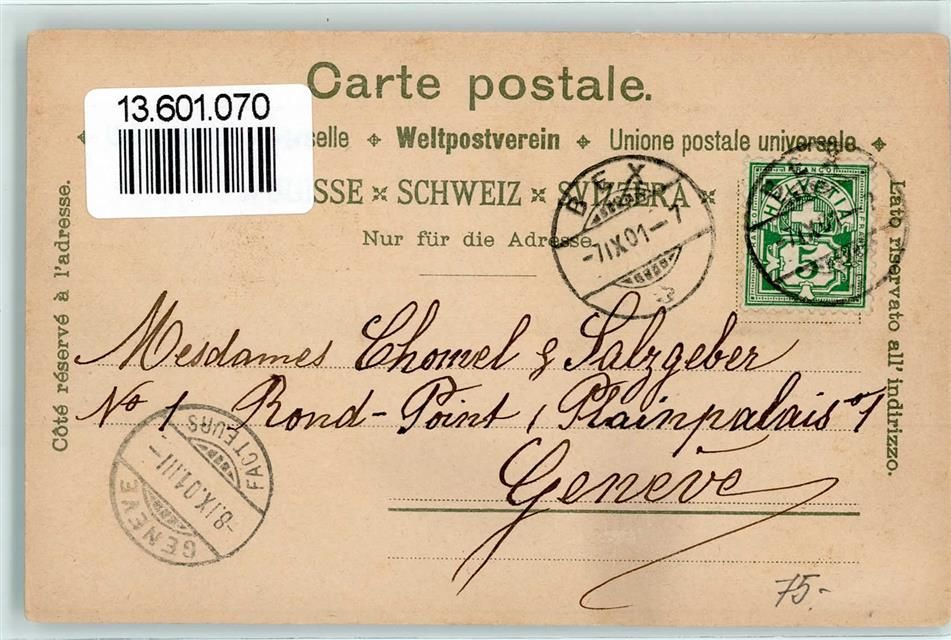 Carte postale.
13.601.070
selle ⬥ Weltpostverein ⬥ Unione postale universale
SSE × SCHWEIZ × SVIZZERA ×
Nur für die Adresse
Côté réservé à l'adresse.
Lato riservato all' indirizzo.
BEX
-7.IX.01-7
HELVETIA
FRANCO
5
Mesdames Chomel & Salzgeber
No 1 Rond-Point, Plainpalais
Genève
GENÈVE
-8.IX.01.III-
FACTEURS
75.-